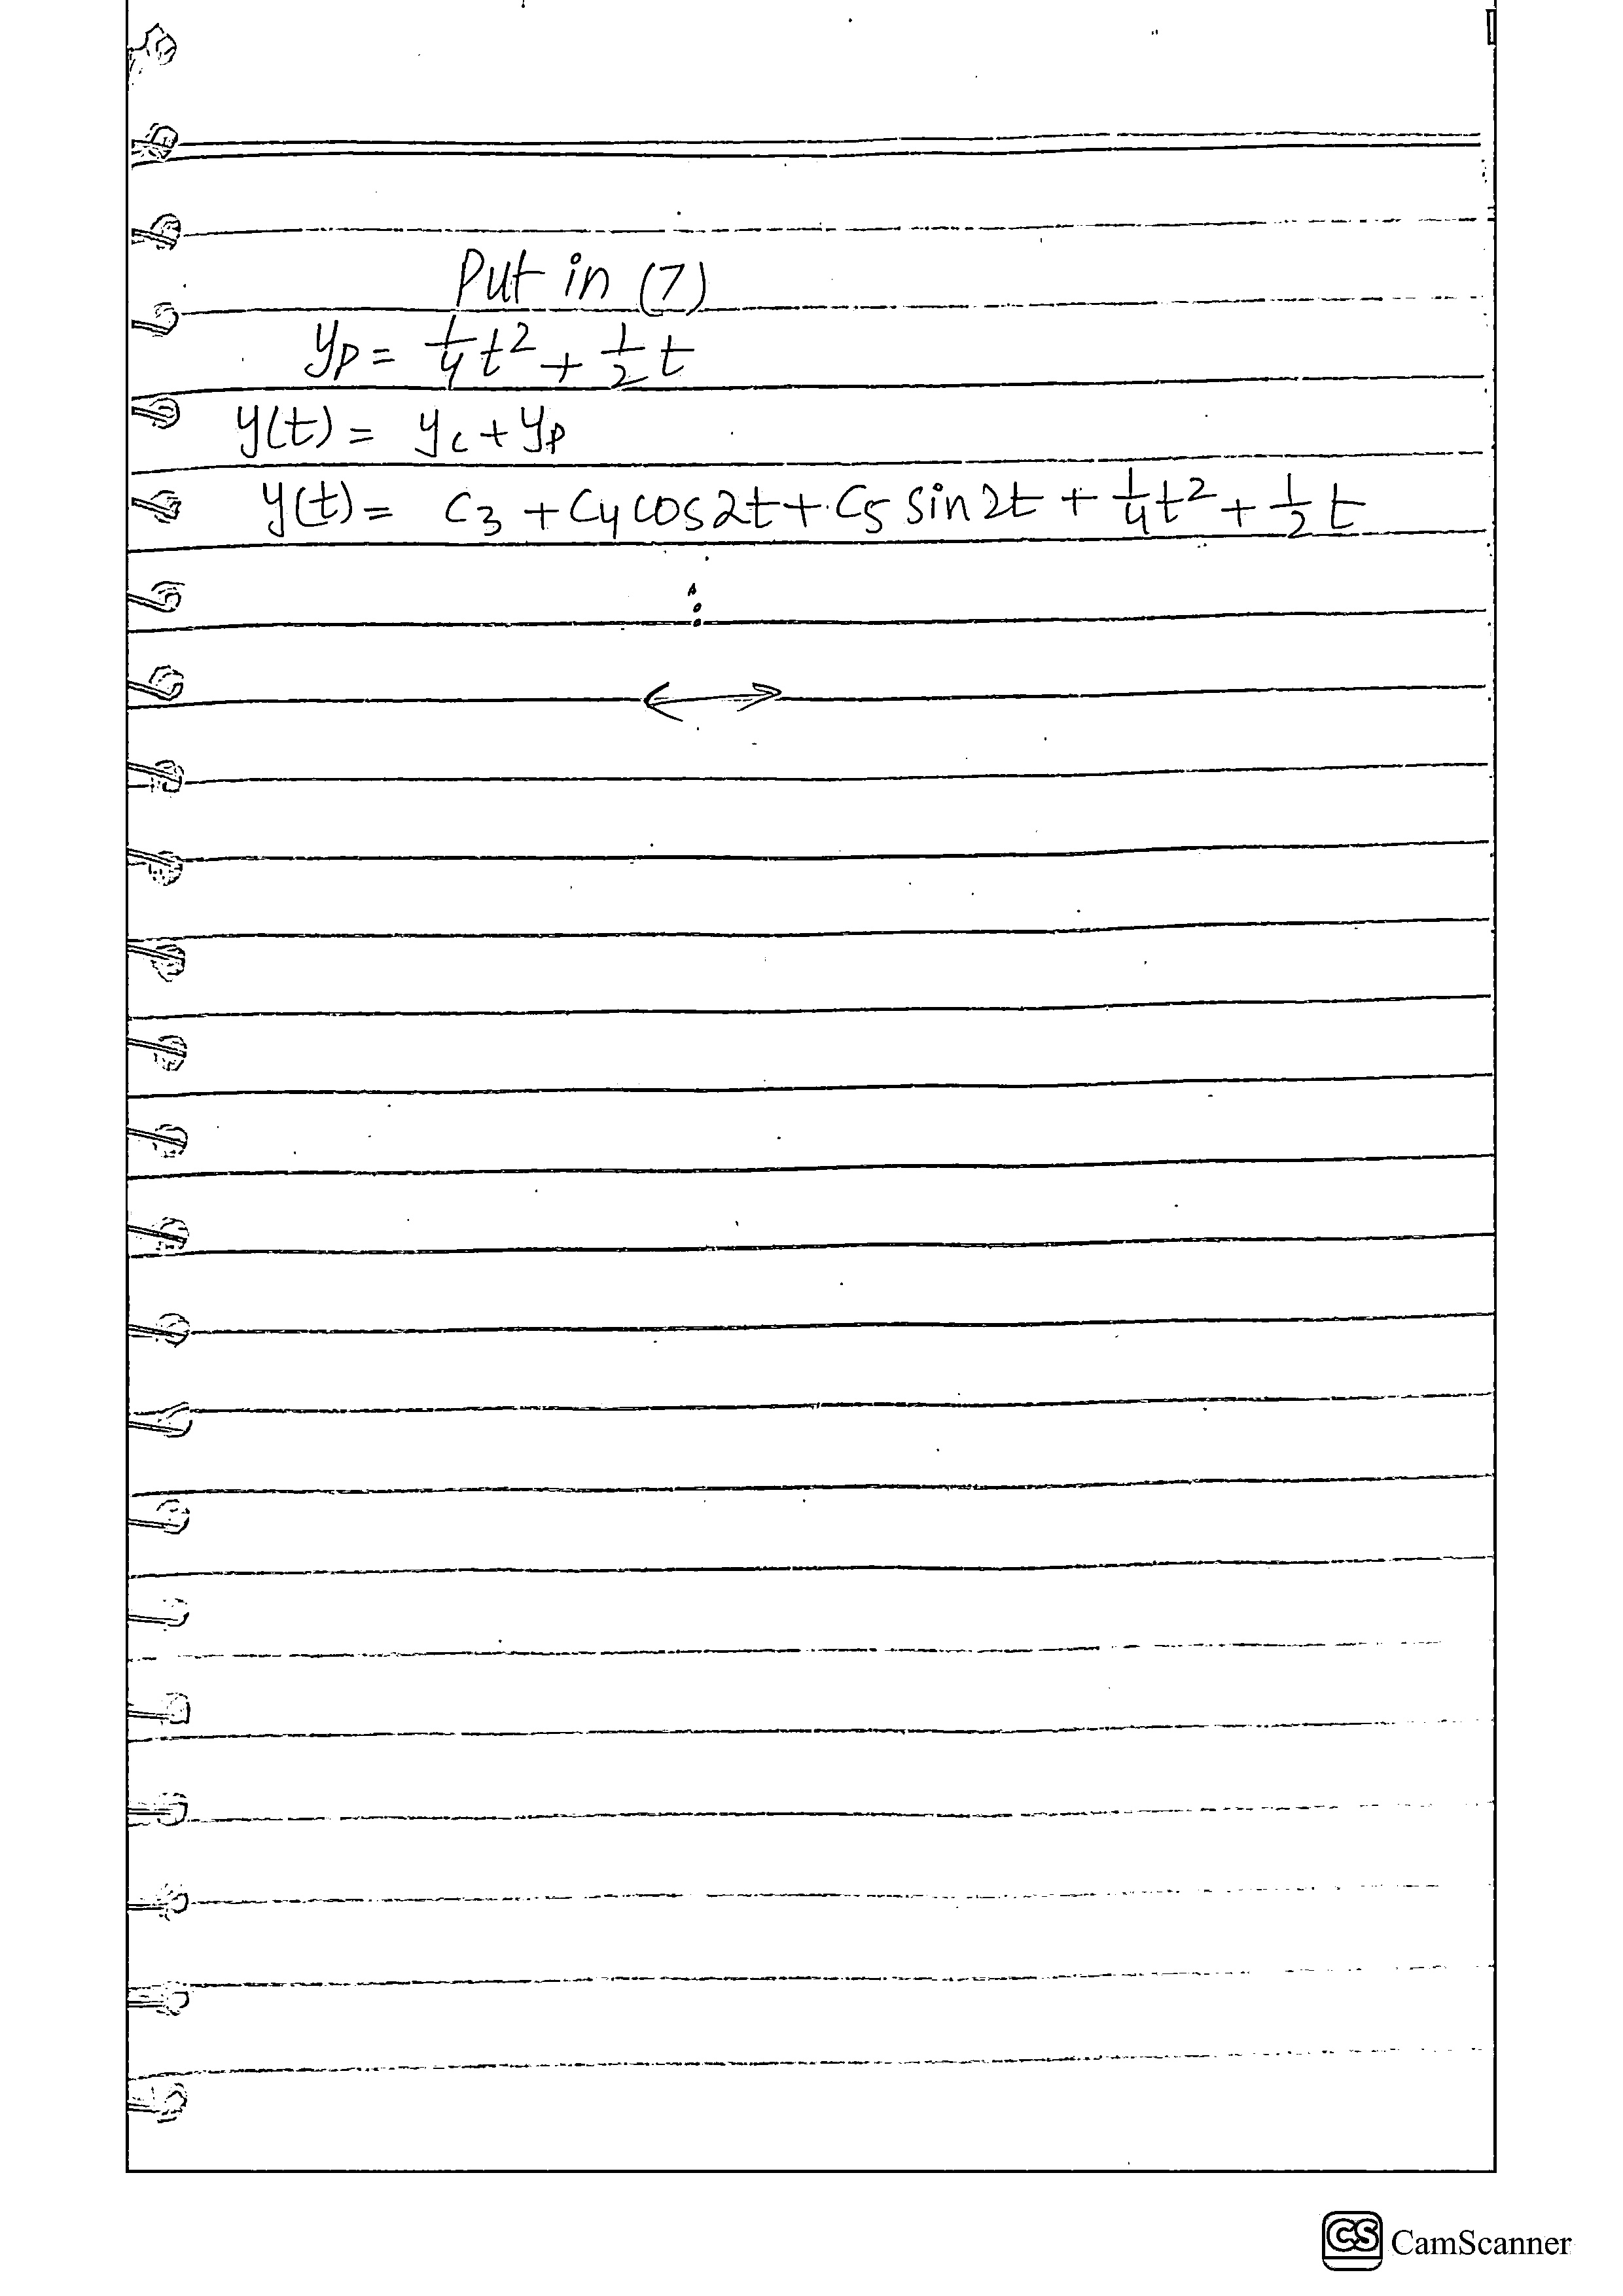 Put in (7)
yp = 1/4 t² + 1/2 t
y(t) = yc + yp
y(t) = c3 + c4 cos2t + c5 sin2t + 1/4 t² + 1/2 t
CS CamScanner